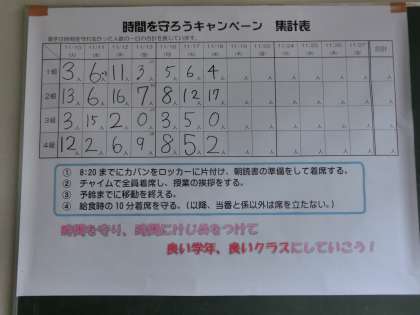 時間を守ろうキャンペーン 集計表
11/10 11/11 11/12 11/13 11/16 11/17 11/18 11/19 11/20 11/24 11/25 11/26 11/27 合計
1組 3人 6人 11人 3人 5人 6人 4人 人 人 人 人 人 人 人
2組 13人 6人 16人 7人 8人 12人 17人 人 人 人 人 人 人 人
3組 3人 15人 2人 0人 3人 5人 0人 人 人 人 人 人 人 人
4組 12人 2人 6人 9人 8人 5人 2人 人 人 人 人 人 人 人
① 8:20 までにカバンをロッカーに片付け、朝読書の準備をして着席する。
② チャイムで全員着席し、授業の挨拶をする。
③ 予鈴までに移動を終える。
④ 給食時の 10 分着席を守る。（以降、当番と係以外は席を立たない。）
時間を守り、時間にけじめをつけて
良い学年、良いクラスにしていこう！